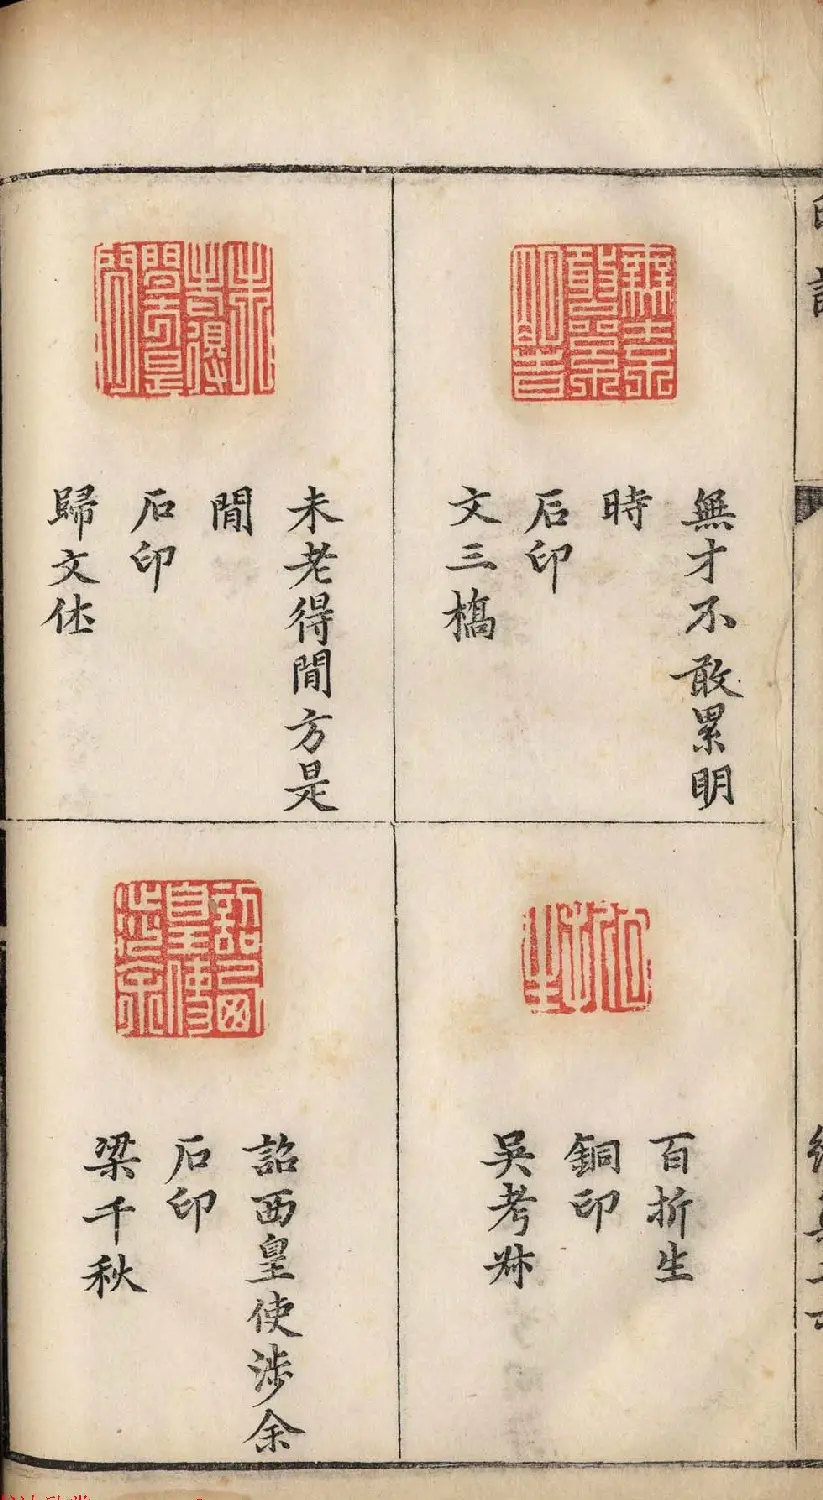 無才不敢累明
時
石印
文三橋
未老得閒方是
閒
石印
歸文休
百折生
銅印
吳考叔
詔西皇使涉余
石印
梁千秋